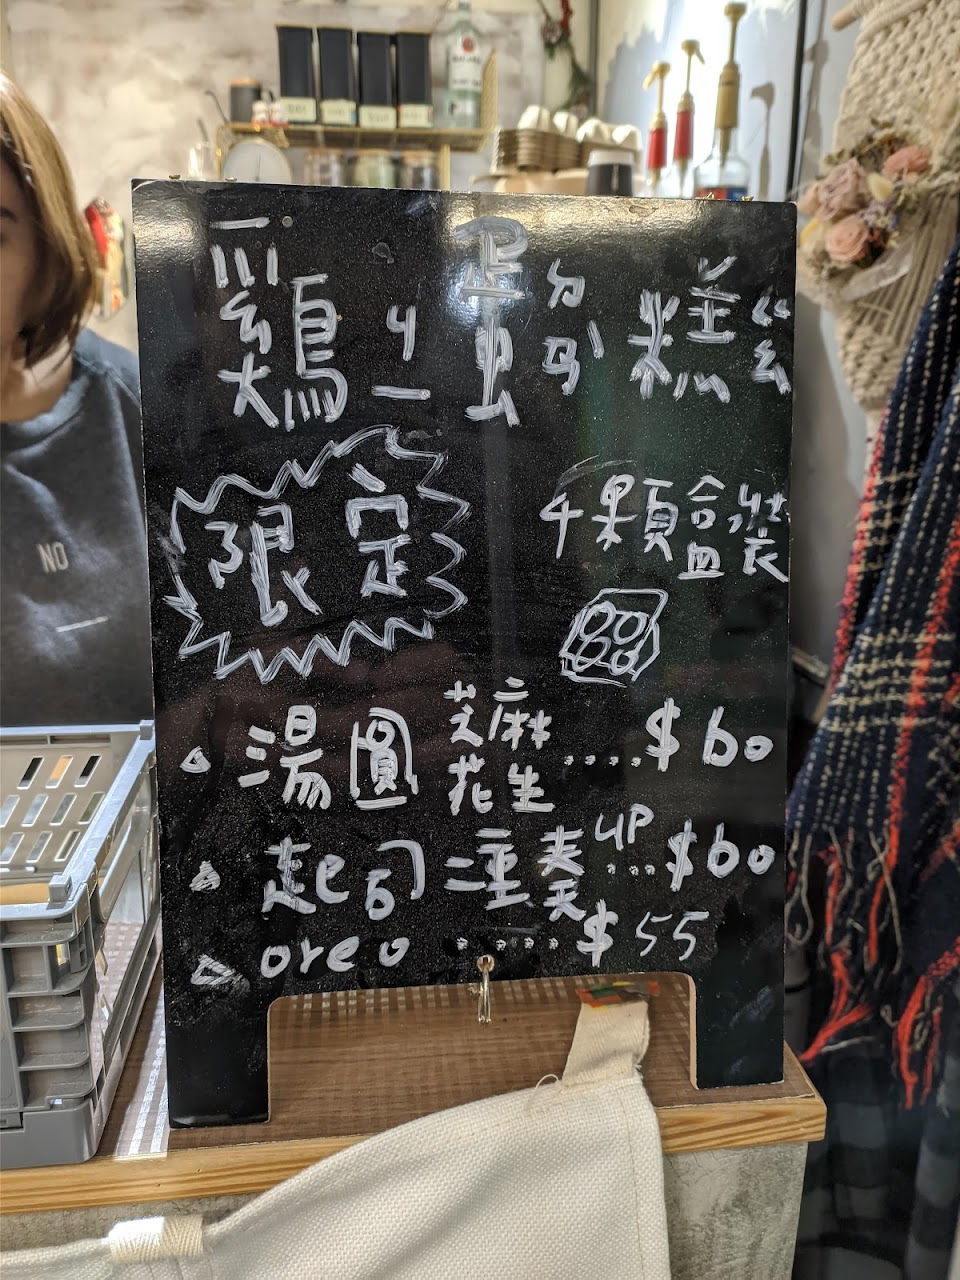 雞蛋糕
限定
4顆盒裝
湯圓 芝麻 花生 .... $60
起司 湩奏 up ... $60
oreo ..... $55
NO